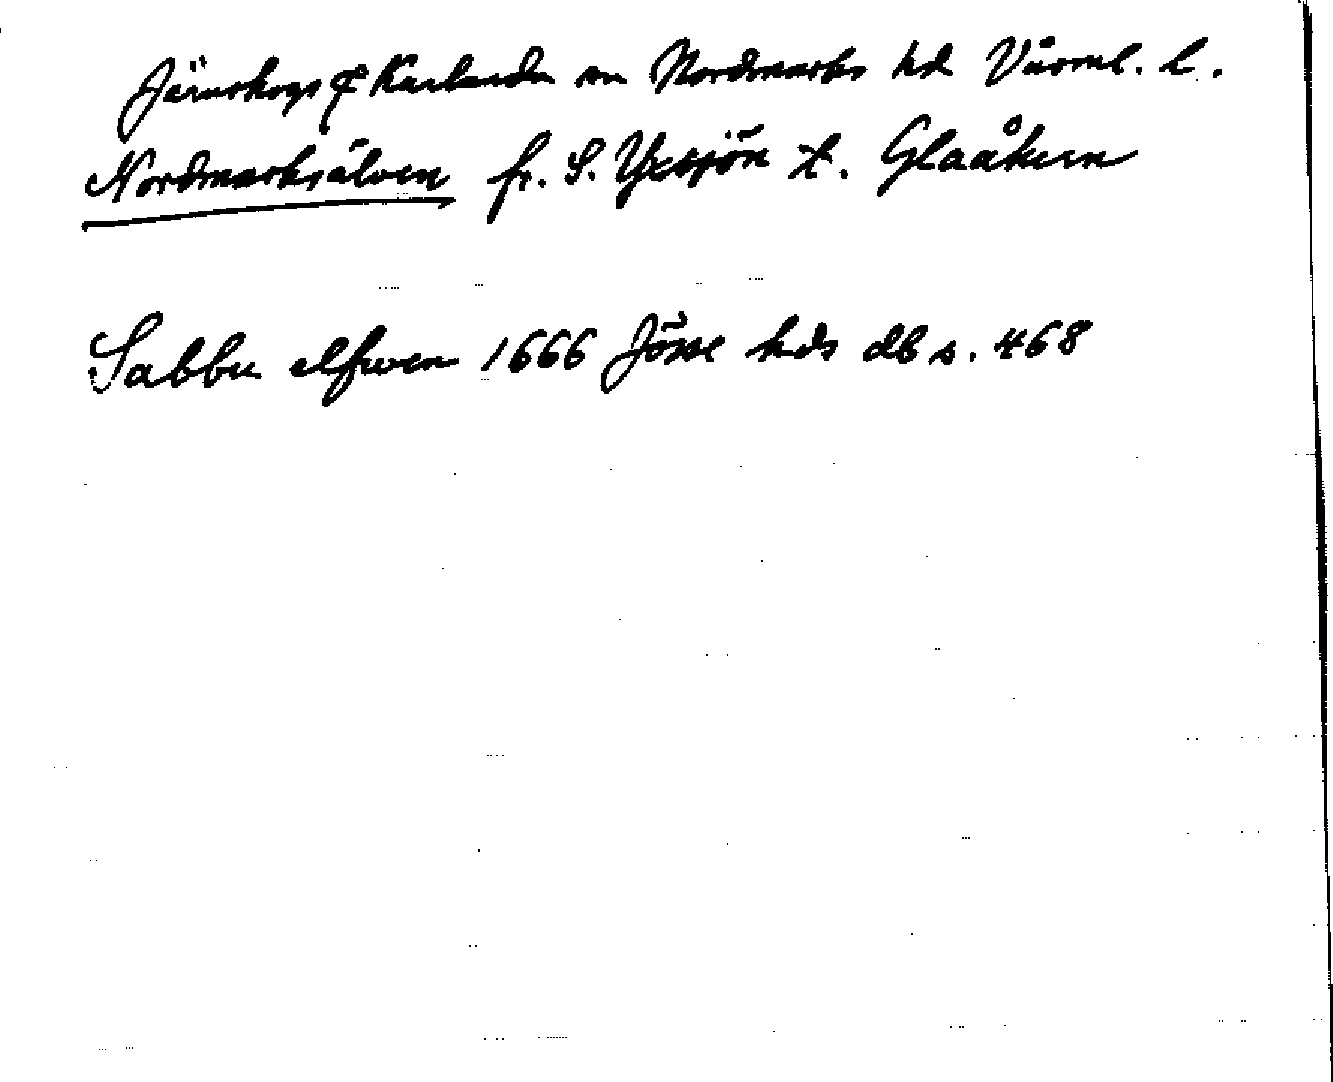 Järnskogs & Karlanda sn Nordmarks hd Värml. l.
Nordmarksälven fr. S. Yxsjön t. Glaåkern
Sabbu elfwen 1666 Jösse hds db s. 468